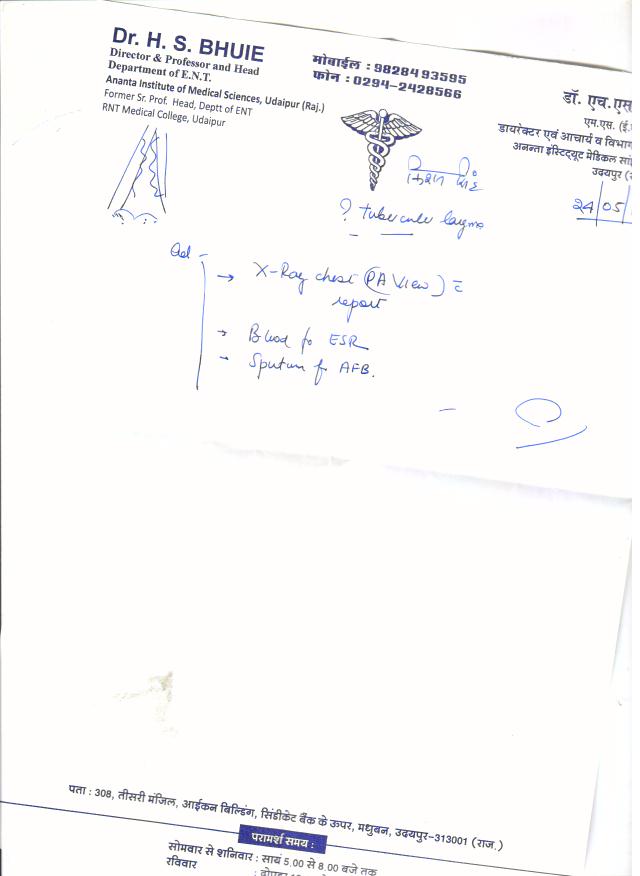 Dr. H. S. BHUIE
Director & Professor and Head
Department of E.N.T.
Ananta Institute of Medical Sciences, Udaipur (Raj.)
Former Sr. Prof. Head, Deptt of ENT
RNT Medical College, Udaipur
मोबाईल : 9828493595
फोन : 0294-2428566
डॉ. एच.एस
एम.एस. (ई.
डायरेक्टर एवं आचार्य व विभाग
अनन्ता इंस्टिट्यूट मेडिकल सां
उदयपुर (र
24/05/
? tubercular
Ad -
→ X-Ray chest (PA View) c̄
report
→ Blood for ESR
→ Sputum for AFB.
पता : 308, तीसरी मंजिल, आईकन बिल्डिंग, सिंडीकेट बैंक के ऊपर, मधुबन, उदयपुर-313001 (राज.)
परामर्श समय :
सोमवार से शनिवार : सायं 5.00 से 8.00 बजे तक
रविवार